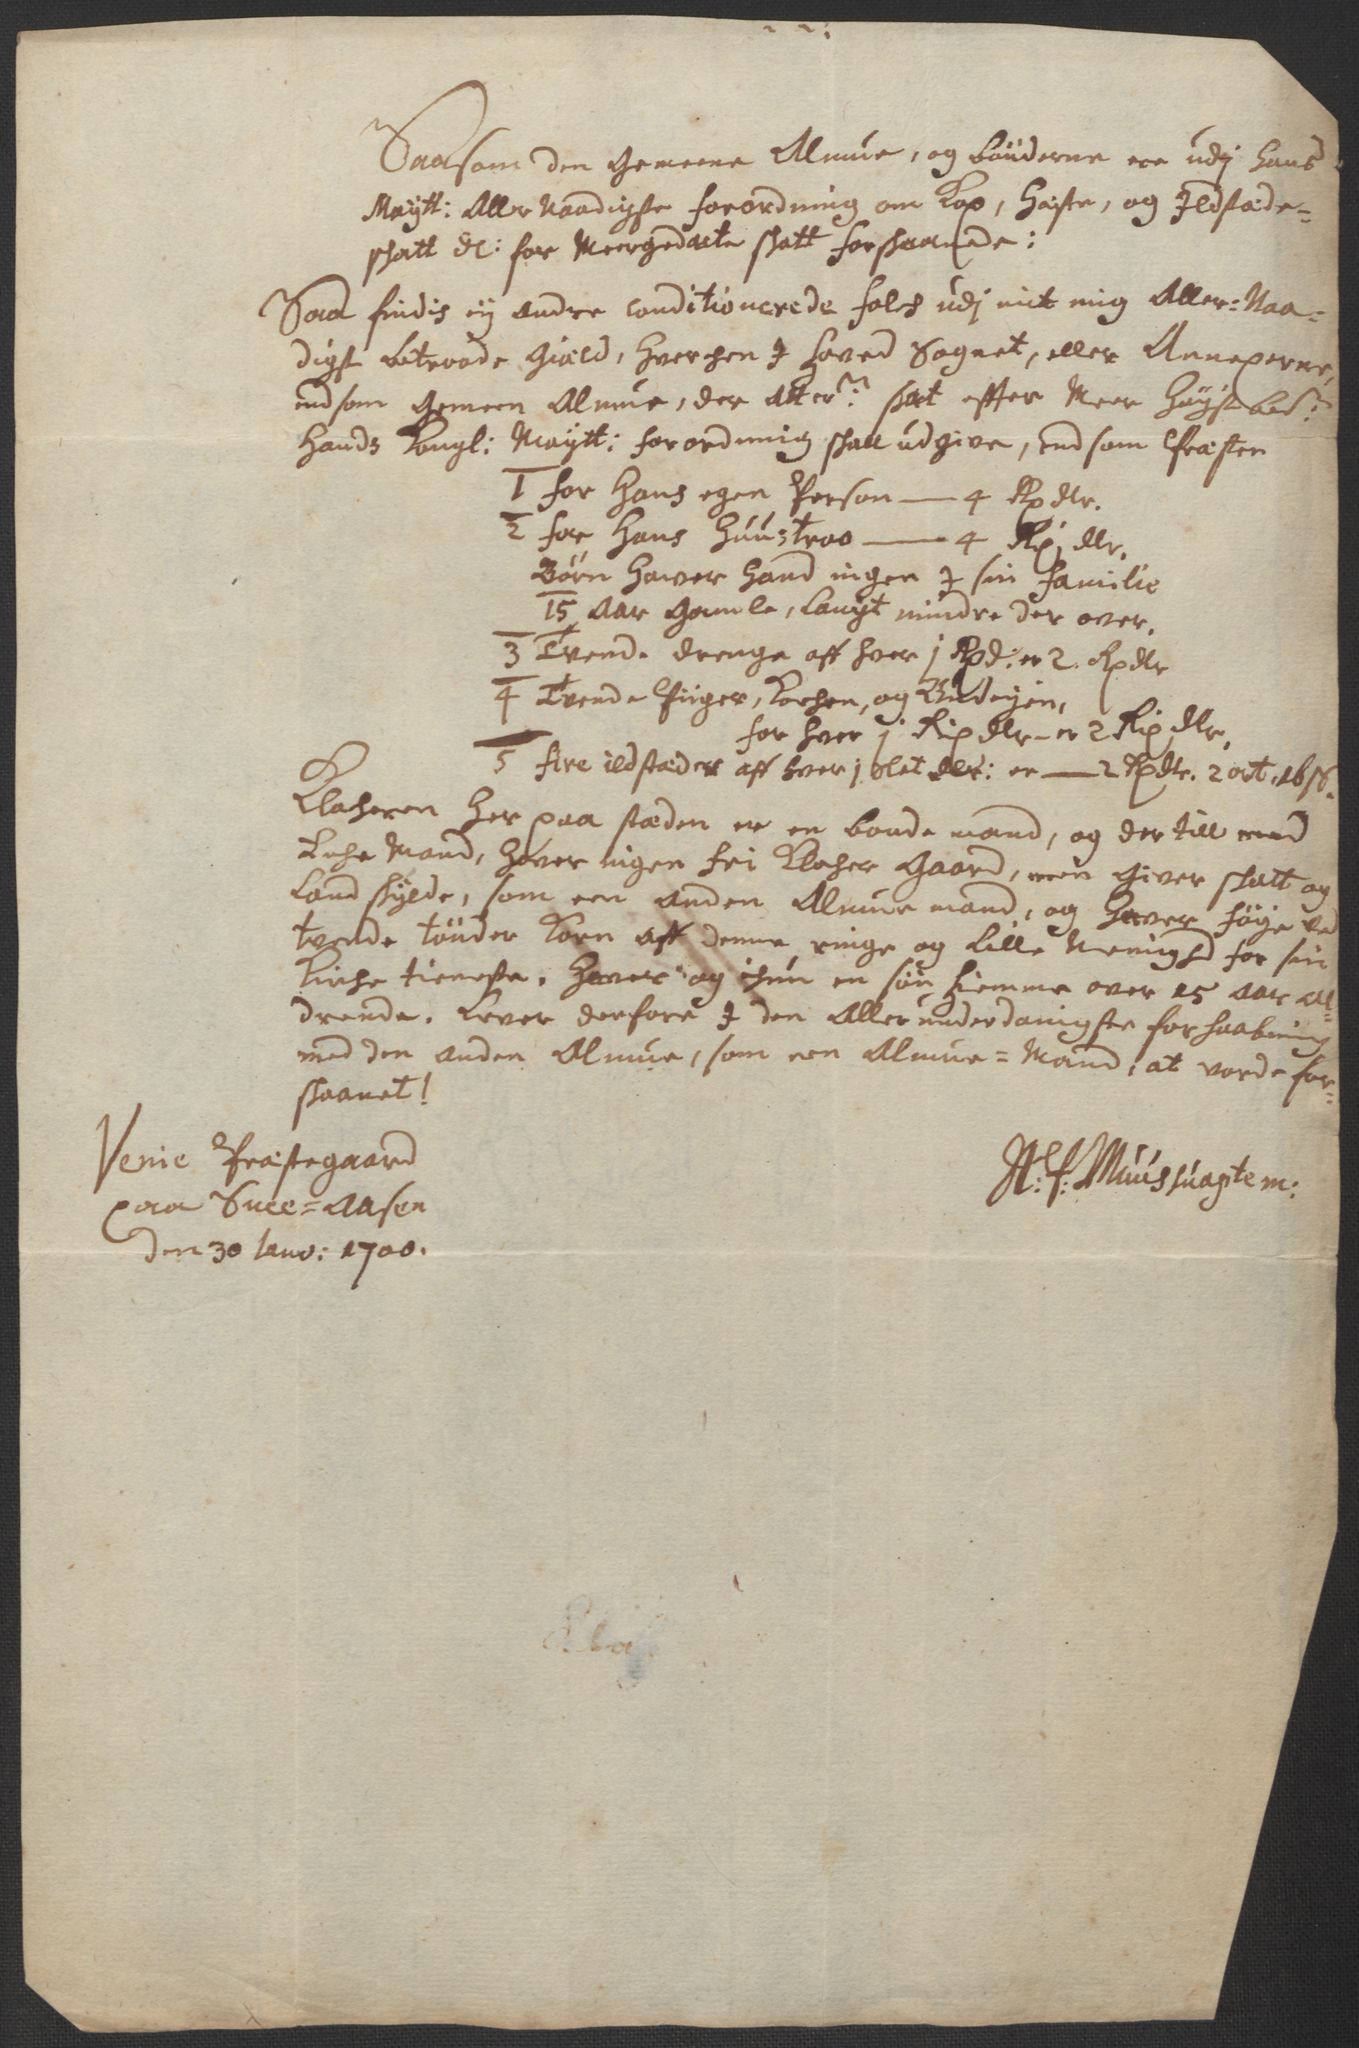 Saasom den Gemeene Almue, og bønderne ere udj Hans
Maÿtt: Aller Naadigste forordning om Kop, Heste, og Ildstæde=
skatt &c: for Meergedacte skatt forskaanede:
Saa findis eÿ andre conditionerede folch udj mit mig Aller=Naa=
digst betroede Giæld, hverchen I Hoved Sognet, eller Annexerne,
end som Gemeen Almue, der skat effter Meer Høyst bem:te
Hands Kongl: Maÿtt: forordning skall udgive, end som Præsten
1 for Hans egen Person — 4 Rp dlr.
2 for Hans Huustroe — 4 Rp dlr.
Børn Haver Hand ingen I sin familie
15 aar Gamle, langt mindre der over.
3 Tvende drenge aff hver j Rpd: er 2. Rpdlr
4 Tvende Piiger, Kochen, og Budeyen,
for hver j Rip dlr - er 2 Rip dlr.
5 fire ildstæder aff hver j slet dlr: er — 2 Rpdlr. 2 ort. 16 sk.
Klocheren Her paa stæden er en bonde mand, og der till med
Mand, Haver ingen fri Klocher Gaard, men Giver skatt og
Landskÿld, som een anden Almue mand, og Haver føÿe ved
tvende tønder Korn aff denne ringe og lille Menighd for sin
Kirche tieneste. Haver og ichun en søn Hiemme over 15 aar al=
drende. Lever derfore I den Aller underdanigste forhaabning
med den anden Almue, som een Almue=Mand, at vorde for=
skaanet!
Venie Præstegaard
paa Snee=Aasen
den 30 Janv: 1700.
Muus